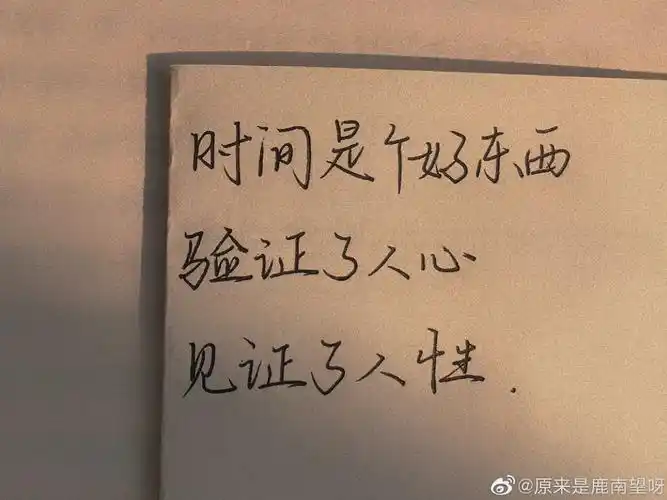 时间是个好东西
验证了人心
见证了人性.
@原来是鹿南望呀